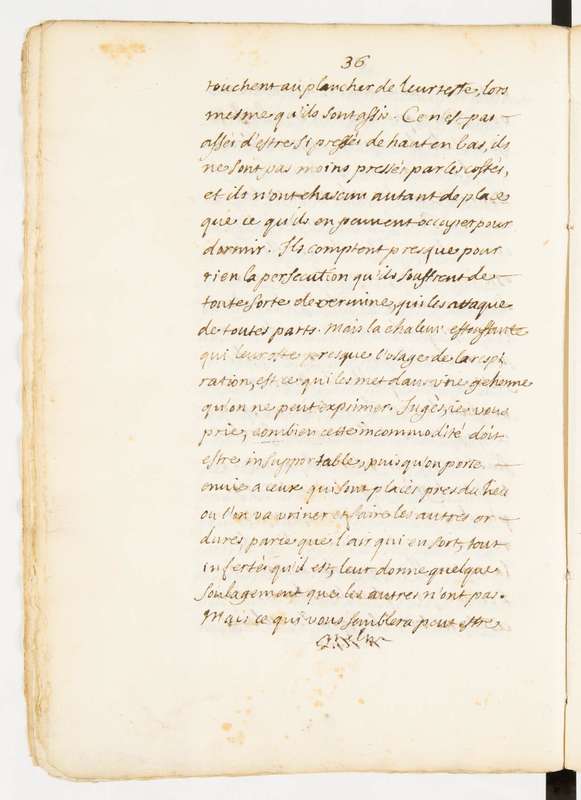 36
touchent au plancher de leur teste, lors
mesme qu'ils sont assis. Ce n'est pas
assés d'estre si pressés de haut en bas, ils
ne sont pas moins pressés par les costés,
et ils n'ont chascun autant de place
que ce qu'ils en peuvent occuper pour
dormir. Ils comptent presque pour
rien la persecution qu'ils souffrent de
toute sorte de vermine, qui les attaque
de toutes parts. Mais la chaleur estouffante
qui leur oste presque l'usage de la respi
ration, est ce qui les met dans une gehenne
qu'on ne peut exprimer. Jugés, je vous
prie, combien cette incommodité doit
estre insupportable, puis qu'on porte
envie a ceux qui sont placés pres du lieu
ou l'on va uriner et faire les autres or
dures, parce que l'air qui en sort, tout
infecté qu'il est, leur donne quelque
soulagement que les autres n'ont pas.
Mais ce qui vous semblera peut estre